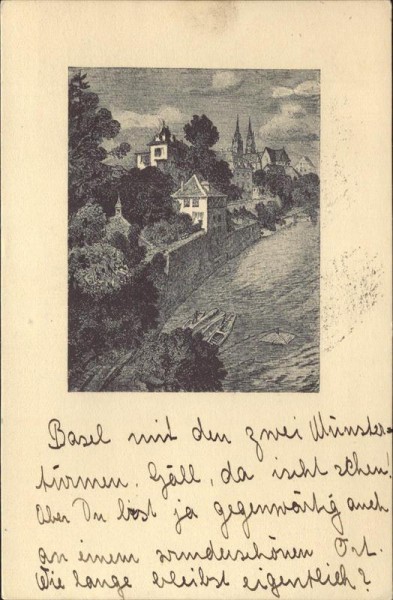 Basel mit den zwei Münster-
türmen. Gäll, da ischt schen!
Aber Du bist ja gegenwärtig auch
an einem wunderschönen Ort.
Wie lange bleibst eigentlich?